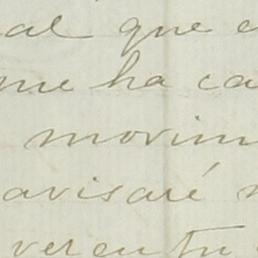 al que e
me ha ca
movim
avisaré
veren tu